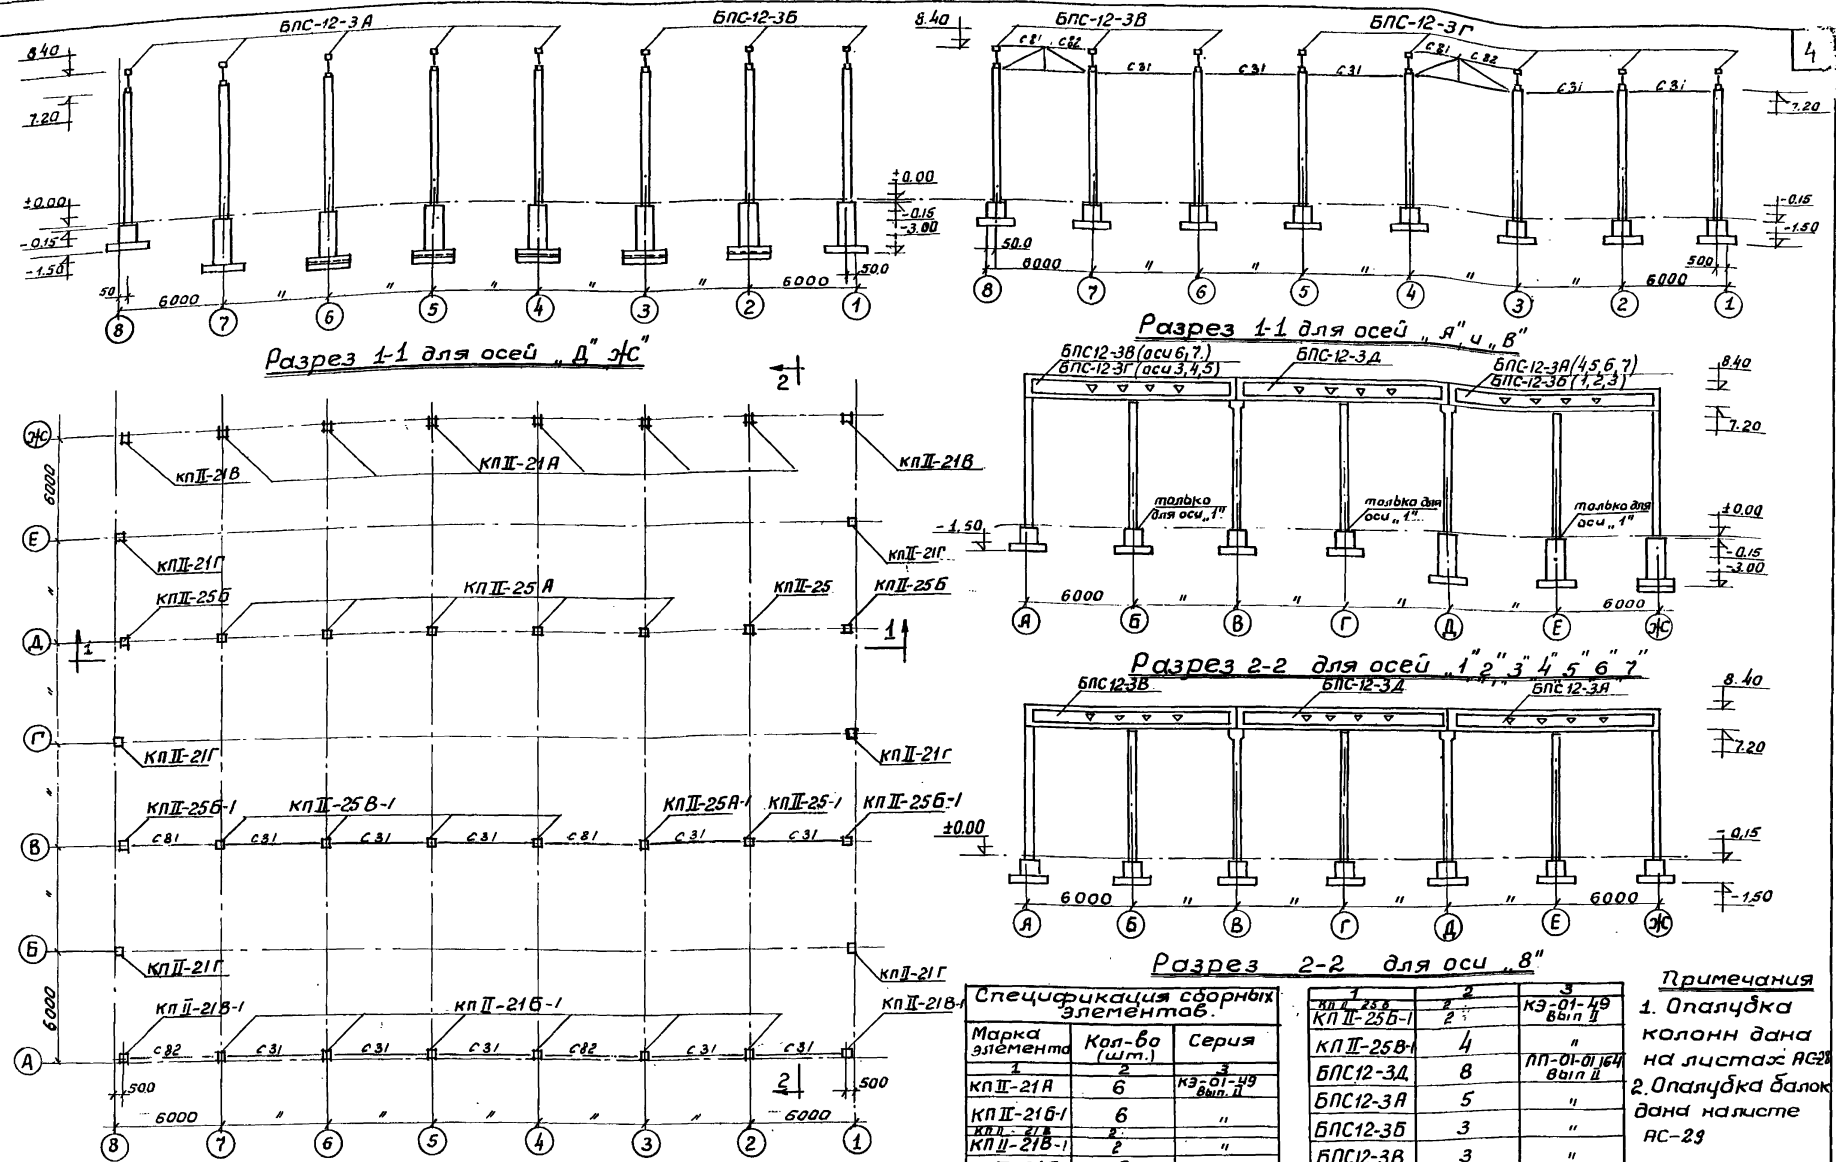 4
БПС-12-3А
БПС-12-3Б
8.40
7.20
±0.00
-0.15
-1.50
±0.00
-0.15
-3.00
50
6000 " " " " " 6000
500
8 7 6 5 4 3 2 1
Разрез 1-1 для осей „Д" Ж"
8.40
БПС-12-3В
БПС-12-3Г
С81 С82
С31 С31 С31
С81 С82
С31 С31
7.20
-0.15
-1.50
500
6000 " " " " " 6000
500
8 7 6 5 4 3 2 1
Разрез 1-1 для осей „А" и „В"
2
Ж
6000
КПII-21В
КПII-21А
КПII-21В
Е
КПII-21Г
КПII-21Г
"
КПII-25Б
КПII-25А
КПII-25
КПII-25Б
Д
1
1
"
Г
КПII-21Г
КПII-21Г
"
КПII-25Б-1
КПII-25В-1
КПII-25А-1
КПII-25-1
КПII-25Б-1
В
С81 С31 С31 С31 С81 С31 С31
"
Б
КПII-21Г
КПII-21Г
6000
КПII-21В-1
КПII-21Б-1
КПII-21В-1
А
С82 С31 С31 С31 С82 С31 С31
2
500
500
6000 " " " " " 6000
8 7 6 5 4 3 2 1
БПС12-3В (оси 6,7.)
БПС-12-3Г (оси 3,4,5)
БПС-12-3Д
БПС-12-3А (4,5,6,7)
БПС-12-3Б (1,2,3)
8.40
7.20
только для оси „1"
только для оси „1"
только для оси „1"
-1.50
±0.00
-0.15
-3.00
6000 " " " " 6000
А Б В Г Д Е Ж
Разрез 2-2 для осей „1" 2" 3" 4" 5" 6" 7"
БПС12-3В
БПС-12-3Д
БПС12-3А
8.40
7.20
±0.00
-0.15
-1.50
6000 " " " " 6000
А Б В Г Д Е Ж
Разрез 2-2 для оси „8"
Спецификация сборных
элементов.
Марка элемента Кол-во (шт.) Серия
1 2 3
КПII-21А 6 КЭ-01-49 Вып. II
КПII-21Б-1 6 "
КПII-21В 2
КПII-21В-1 2 "
1 2 3
КПII-25Б 2 КЭ-01-49 Вып II
КПII-25Б-1 2
КПII-25В-1 4 "
БПС12-3Д 8 ПП-01-01/64 Вып II
БПС12-3А 5 "
БПС12-3Б 3 "
БПС12-3В 3 "
Примечания
1. Опалубка
колонн дана
на листах АС-28
2. Опалубка балок
дана на листе
АС-29